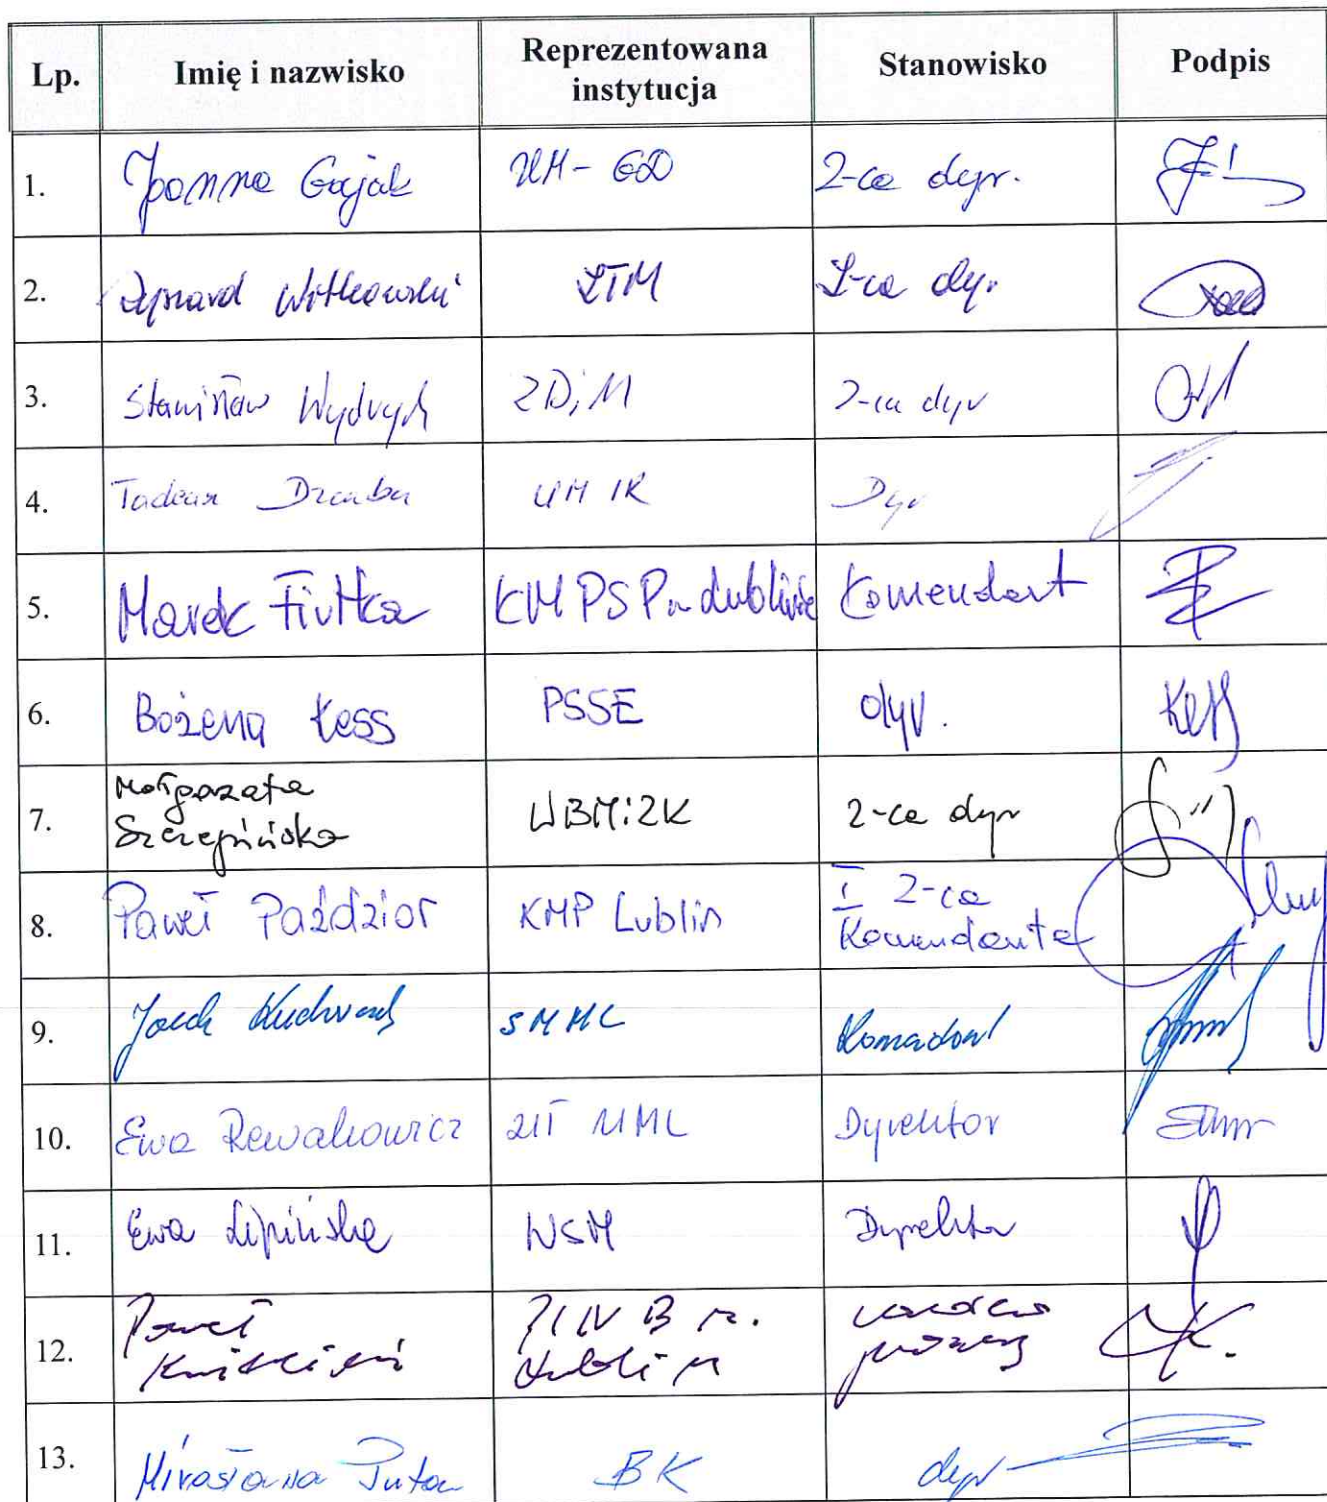 Lp. Imię i nazwisko Reprezentowana instytucja Stanowisko Podpis
1. Joanna Gajak UM-GD Z-ca dyr.
2. Witkowski ZTM Z-ca dyr.
3. Stanisław Wydrych ZDiM Z-ca dyr
4. Tadeusz Dziuba UM IR Dyr
5. Marek Fiutka KM PSP w Lublinie Komendant
6. Bożena Kess PSSE dyr. Kess
7. Małgorzata Szczepińska WBMiZK Z-ca dyr
8. Paweł Paździor KMP Lublin I Z-ca Komendanta
9. Jacek Kucharczyk SMML Komendant
10. Ewa Rewakowicz ZIT UML Dyrektor
11. Ewa Lipińska WSM Dyrektor
12. Paweł Kwiecień PINB m. Lublin
13. Mirosława Puton BK dyr